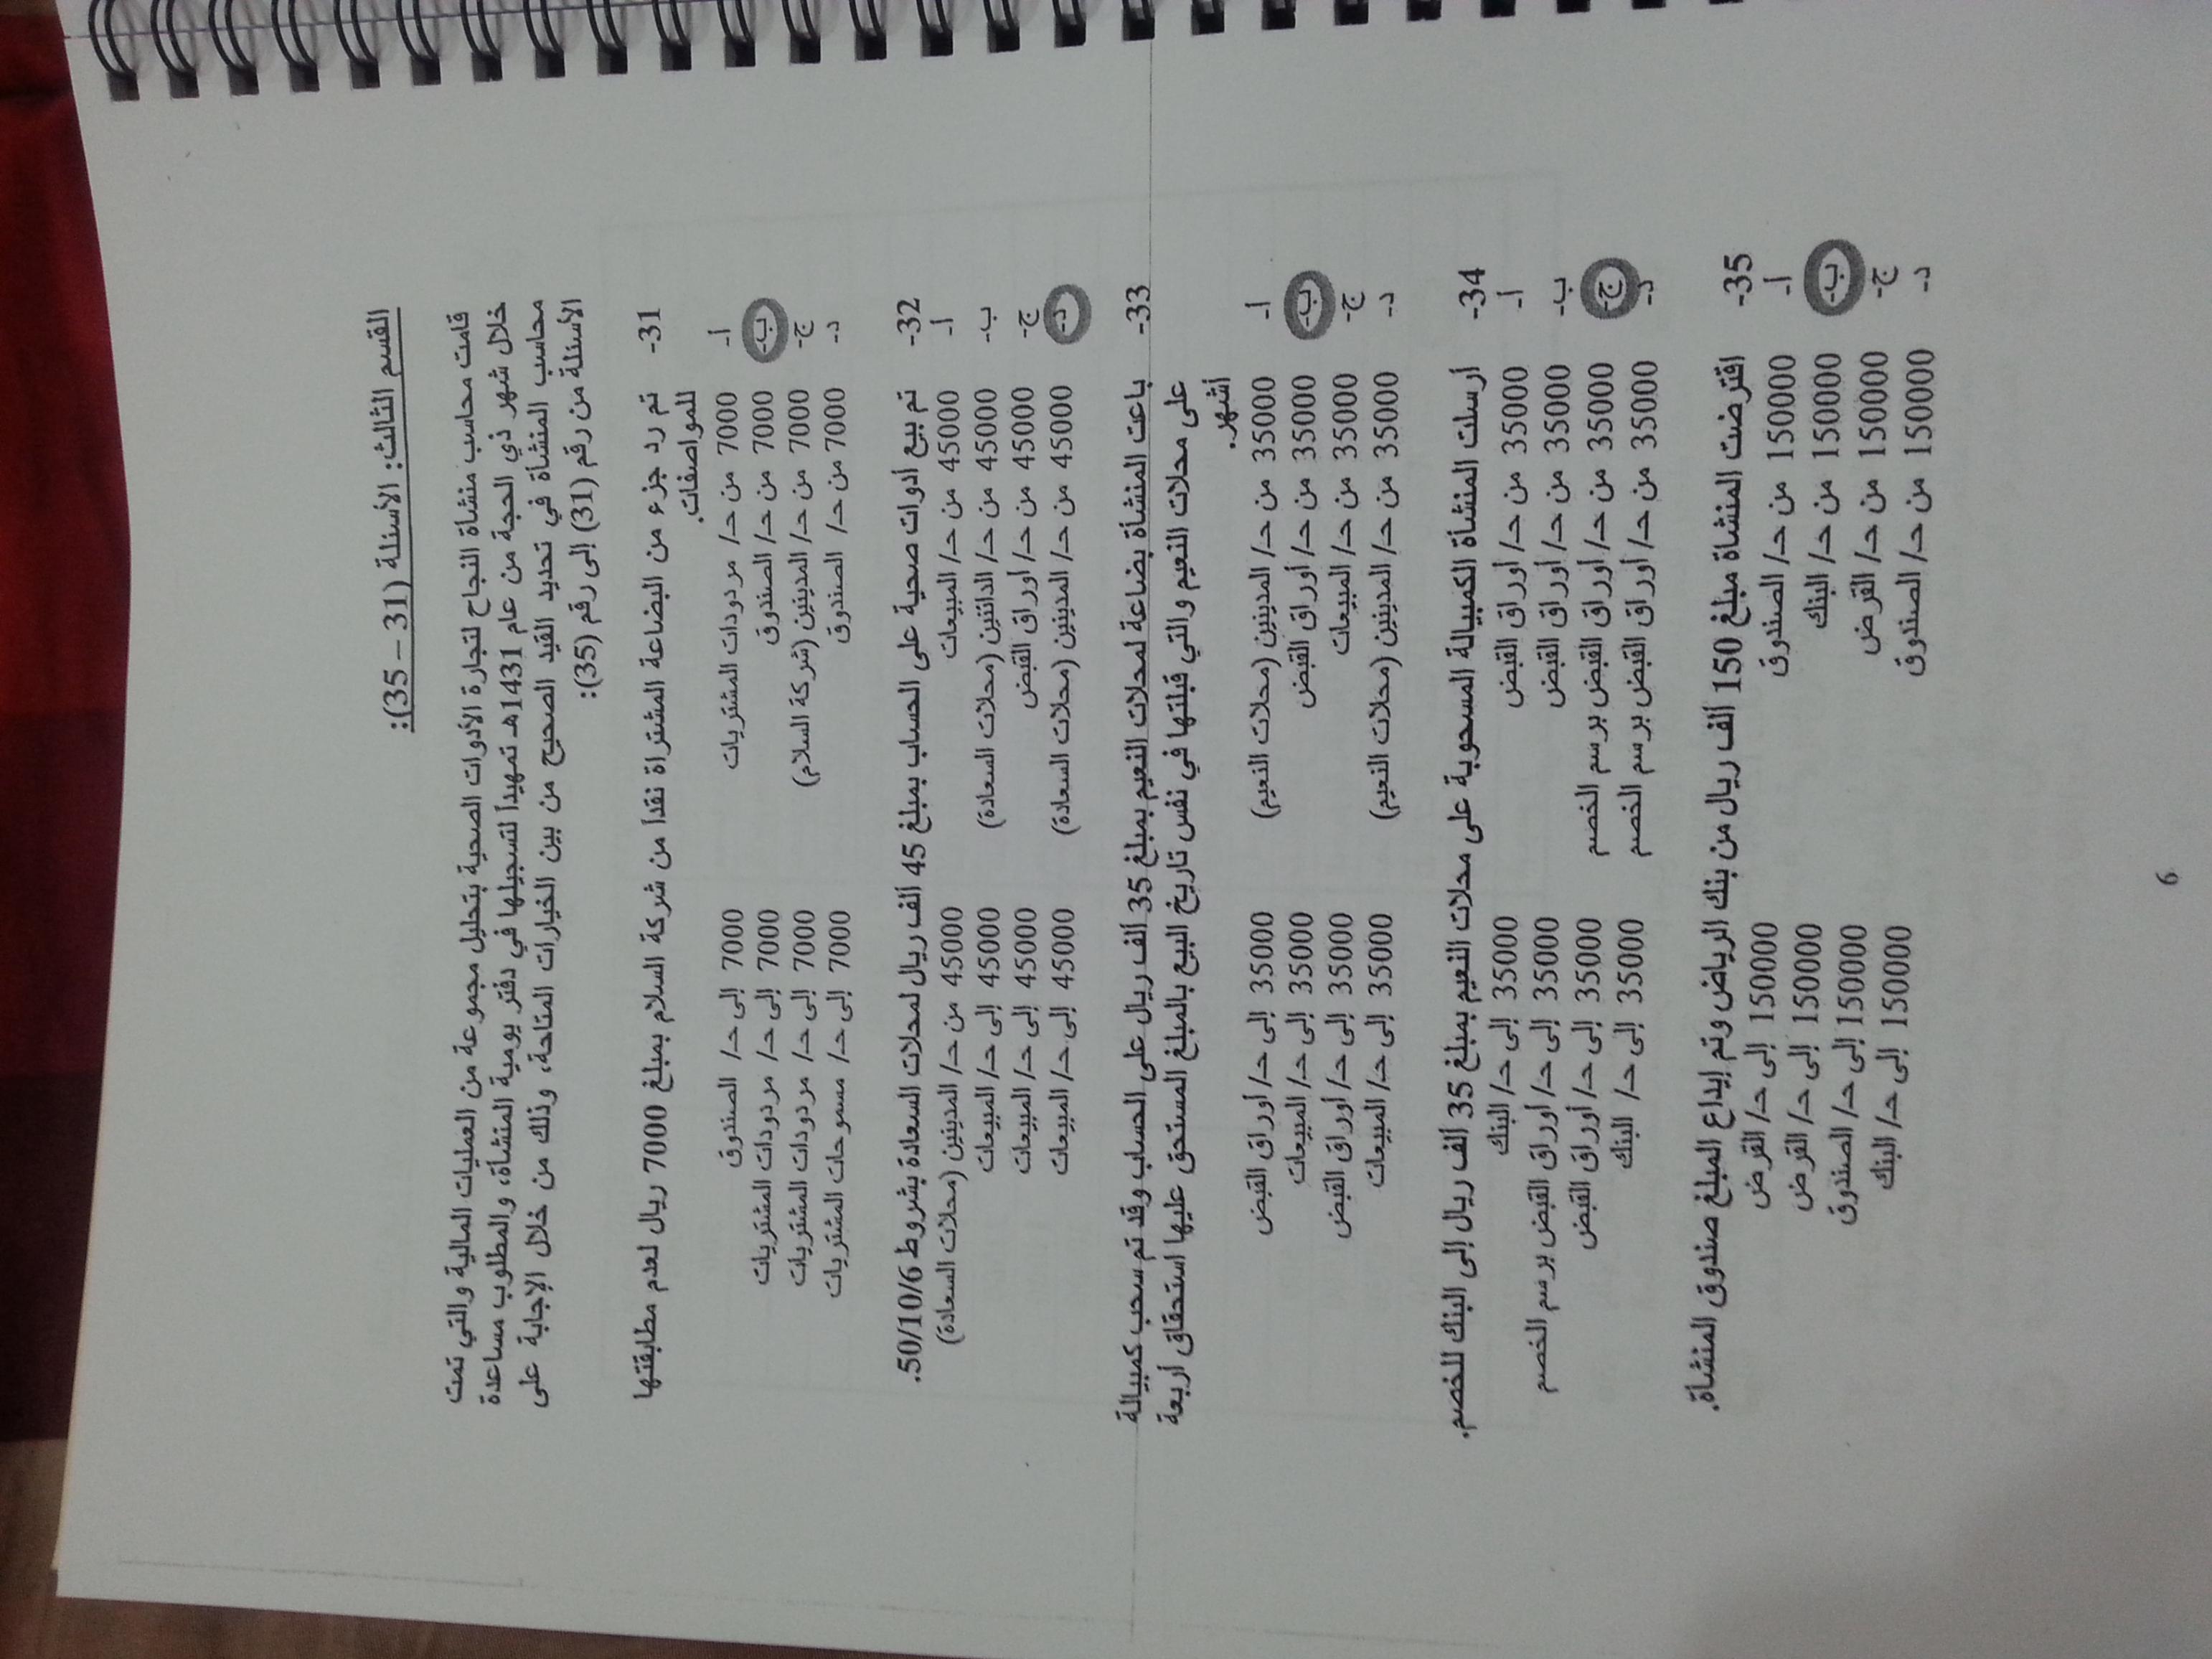 القسم الثالث: الأسئلة (31 – 35):
قامت محاسب منشاة النجاح لتجارة الأدوات الصحية بتحليل مجموعة من العمليات المالية والتي تمت
خلال شهر ذي الحجة من عام 1431هـ تمهيداً لتسجيلها في دفتر يومية المنشاة، والمطلوب مساعدة
محاسب المنشاة في تحديد القيد الصحيح من بين الخيارات المتاحة، وذلك من خلال الإجابة على
الأسئلة من رقم (31) إلى رقم (35):
31- تم رد جزء من البضاعة المشتراة نقدا من شركة السلام بمبلغ 7000 ريال لعدم مطابقتها
للمواصفات.
أ- 7000 من حـ/ مردودات المشتريات 7000 إلى حـ/ الصندوق
ب- 7000 من حـ/ الصندوق 7000 إلى حـ/ مردودات المشتريات
ج- 7000 من حـ/ المدينين (شركة السلام) 7000 إلى حـ/ مردودات المشتريات
د- 7000 من حـ/ الصندوق 7000 إلى حـ/ مسموحات المشتريات
32- تم بيع أدوات صحية على الحساب بمبلغ 45 ألف ريال لمحلات السعادة بشروط 50/10/6.
أ- 45000 من حـ/ المبيعات 45000 من حـ/ المدينين (محلات السعادة)
ب- 45000 من حـ/ الدائنين (محلات السعادة) 45000 إلى حـ/ المبيعات
ج- 45000 من حـ/ أوراق القبض 45000 إلى حـ/ المبيعات
د- 45000 من حـ/ المدينين (محلات السعادة) 45000 إلى حـ/ المبيعات
33- باعت المنشاة بضاعة لمحلات النعيم بمبلغ 35 ألف ريال على الحساب وقد تم سحب كمبيالة
على محلات النعيم والتي قبلتها في نفس تاريخ البيع بالمبلغ المستحق عليها استحقاق أربعة
أشهر.
أ- 35000 من حـ/ المدينين (محلات النعيم) 35000 إلى حـ/ أوراق القبض
ب- 35000 من حـ/ أوراق القبض 35000 إلى حـ/ المبيعات
ج- 35000 من حـ/ المبيعات 35000 إلى حـ/ أوراق القبض
د- 35000 من حـ/ المدينين (محلات النعيم) 35000 إلى حـ/ المبيعات
34- أرسلت المنشاة الكمبيالة المسحوبة على محلات النعيم بمبلغ 35 ألف ريال إلى البنك للخصم.
أ- 35000 من حـ/ أوراق القبض 35000 إلى حـ/ البنك
ب- 35000 من حـ/ أوراق القبض 35000 إلى حـ/ أوراق القبض برسم الخصم
ج- 35000 من حـ/ أوراق القبض برسم الخصم 35000 إلى حـ/ أوراق القبض
د- 35000 من حـ/ أوراق القبض برسم الخصم 35000 إلى حـ/ البنك
35- اقترضت المنشاة مبلغ 150 ألف ريال من بنك الرياض وتم إيداع المبلغ صندوق المنشاة.
أ- 150000 من حـ/ الصندوق 150000 إلى حـ/ القرض
ب- 150000 من حـ/ البنك 150000 إلى حـ/ القرض
ج- 150000 من حـ/ القرض 150000 إلى حـ/ الصندوق
د- 150000 من حـ/ الصندوق 150000 إلى حـ/ البنك
6